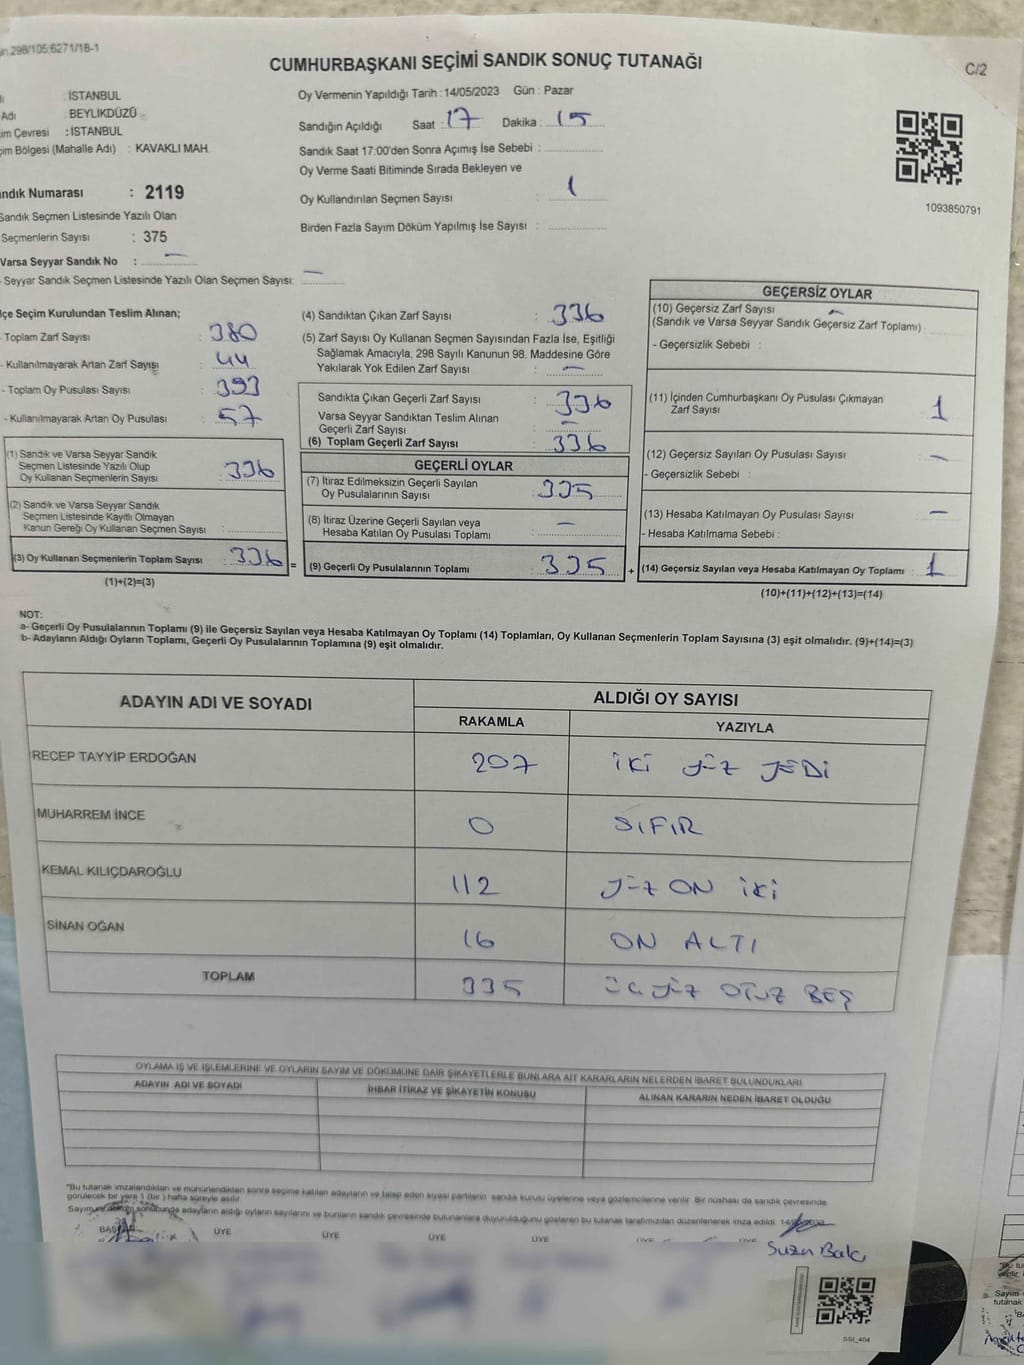 298/105;6271/18-1
CUMHURBAŞKANI SEÇİMİ SANDIK SONUÇ TUTANAĞI
C/2
: İSTANBUL
Adı : BEYLİKDÜZÜ
im Çevresi : İSTANBUL
im Bölgesi (Mahalle Adı) : KAVAKLI MAH.
ndık Numarası : 2119
Sandık Seçmen Listesinde Yazılı Olan
Seçmenlerin Sayısı : 375
Varsa Seyyar Sandık No : –
- Seyyar Sandık Seçmen Listesinde Yazılı Olan Seçmen Sayısı: –
Oy Vermenin Yapıldığı Tarih : 14/05/2023 Gün : Pazar
Sandığın Açıldığı Saat : 17 Dakika : 15
Sandık Saat 17:00'den Sonra Açımış İse Sebebi :
Oy Verme Saati Bitiminde Sırada Bekleyen ve
Oy Kullandırılan Seçmen Sayısı : 1
Birden Fazla Sayım Döküm Yapılmış İse Sayısı :
1093850791
lçe Seçim Kurulundan Teslim Alınan;
- Toplam Zarf Sayısı : 380
- Kullanılmayarak Artan Zarf Sayısı : 44
- Toplam Oy Pusulası Sayısı : 393
- Kullanılmayarak Artan Oy Pusulası : 57
(1) Sandık ve Varsa Seyyar Sandık
Seçmen Listesinde Yazılı Olup
Oy Kullanan Seçmenlerin Sayısı : 336
(2) Sandık ve Varsa Seyyar Sandık
Seçmen Listesinde Kayıtlı Olmayan
Kanun Gereği Oy Kullanan Seçmen Sayısı :
(3) Oy Kullanan Seçmenlerin Toplam Sayısı : 336 =
(1)+(2)=(3)
(4) Sandıktan Çıkan Zarf Sayısı : 336
(5) Zarf Sayısı Oy Kullanan Seçmen Sayısından Fazla İse, Eşitliği
Sağlamak Amacıyla, 298 Sayılı Kanunun 98. Maddesine Göre
Yakılarak Yok Edilen Zarf Sayısı : –
Sandıkta Çıkan Geçerli Zarf Sayısı : 336
Varsa Seyyar Sandıktan Teslim Alınan
Geçerli Zarf Sayısı : –
(6) Toplam Geçerli Zarf Sayısı : 336
GEÇERLİ OYLAR
(7) İtiraz Edilmeksizin Geçerli Sayılan
Oy Pusulalarının Sayısı : 335
(8) İtiraz Üzerine Geçerli Sayılan veya
Hesaba Katılan Oy Pusulası Toplamı : –
(9) Geçerli Oy Pusulalarının Toplamı : 335 +
GEÇERSİZ OYLAR
(10) Geçersiz Zarf Sayısı –
(Sandık ve Varsa Seyyar Sandık Geçersiz Zarf Toplamı) :
- Geçersizlik Sebebi :
(11) İçinden Cumhurbaşkanı Oy Pusulası Çıkmayan
Zarf Sayısı 1
(12) Geçersiz Sayılan Oy Pusulası Sayısı –
- Geçersizlik Sebebi :
(13) Hesaba Katılmayan Oy Pusulası Sayısı –
- Hesaba Katılmama Sebebi :
(14) Geçersiz Sayılan veya Hesaba Katılmayan Oy Toplamı : 1
(10)+(11)+(12)+(13)=(14)
NOT:
a- Geçerli Oy Pusulalarının Toplamı (9) ile Geçersiz Sayılan veya Hesaba Katılmayan Oy Toplamı (14) Toplamları, Oy Kullanan Seçmenlerin Toplam Sayısına (3) eşit olmalıdır. (9)+(14)=(3)
b- Adayların Aldığı Oyların Toplamı, Geçerli Oy Pusulalarının Toplamına (9) eşit olmalıdır.
ADAYIN ADI VE SOYADI
ALDIĞI OY SAYISI
RAKAMLA YAZIYLA
RECEP TAYYİP ERDOĞAN 207 İKİ YÜZ YEDİ
MUHARREM İNCE 0 SIFIR
KEMAL KILIÇDAROĞLU 112 YÜZ ON İKİ
SİNAN OĞAN 16 ON ALTI
TOPLAM 335 ÜÇ YÜZ OTUZ BEŞ
OYLAMA İŞ VE İŞLEMLERİNE VE OYLARIN SAYIM VE DÖKÜMÜNE DAİR ŞİKAYETLERLE BUNLARA AİT KARARLARIN NELERDEN İBARET BULUNDUKLARI
ADAYIN ADI VE SOYADI İHBAR İTİRAZ VE ŞİKAYETİN KONUSU ALINAN KARARIN NEDEN İBARET OLDUĞU
*Bu tutanak imzalandıktan ve mühürlendikten sonra seçime katılan adayların ve talep eden siyasi partilerin sandık kurulu üyelerine veya gözlemcilerine verilir. Bir nüshası da sandık çevresinde
görülecek bir yere 1 (bir) hafta süreyle asılır.
Sayım ve döküm sonucunda adayların aldığı oyların sayılarını ve bunların sandık çevresinde bulunanlara duyurulduğunu gösteren bu tutanak tarafımızdan düzenlenerek imza edildi.
ÜYE ÜYE ÜYE ÜYE
SSI_404
Sayım
tutanak